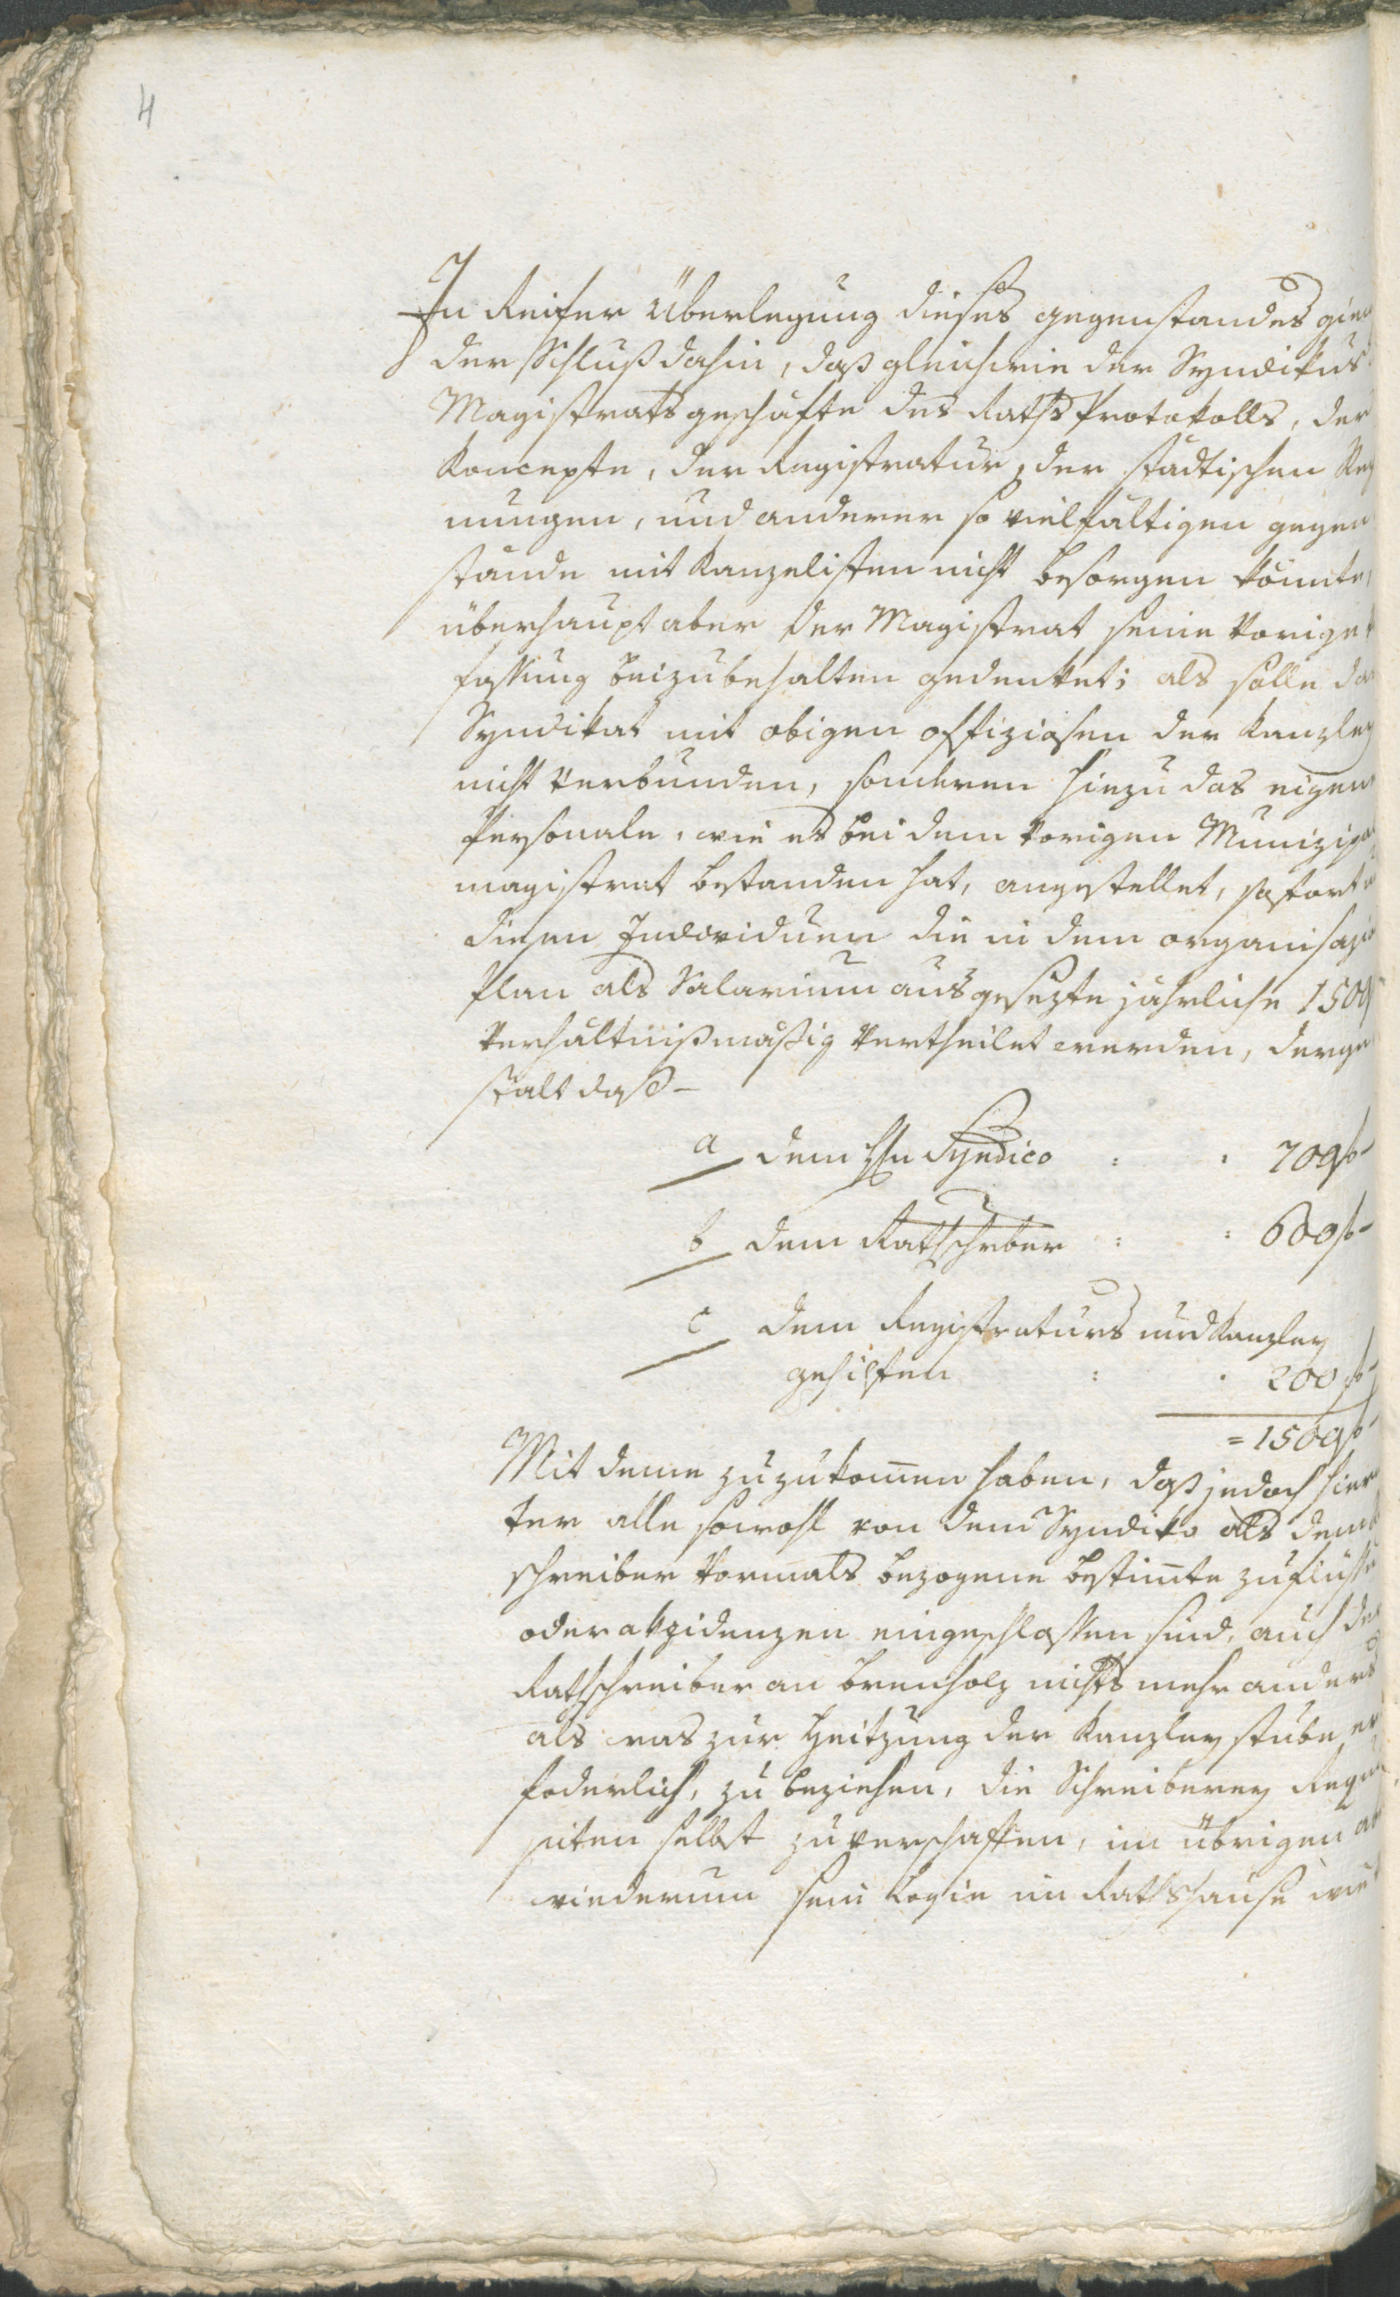 4
In Reifer Überlegung dieses gegenstandes gien
der Schluß dahin, daß gleichwie der Syndikus
Magistratsgeschäfte des Raths Protokolls, der
Koncepte, der Registratur, der städtischen Rech
nungen, und anderer so vielfältigen gegen
stände mit Kanzelisten nicht besorgen könnte,
überhaupt aber der Magistrat seine vorige
fassung beizubehalten gedenket; als solle das
Syndikat mit obigen offiziosen der Kanzley
nicht verbunden, sonderen hiezu das eigen
Personale, wie es bei dem vorigen Munizipal
magistrat bestanden hat, angestellet, sofort
diesen Individuen die in dem organisazio
Plan als Salarium ausgesezte jährliche 1500 f
verhältnißmäßig vertheilet werden, derge
stalt daß –
a dem Hrn Syndico : : 700 f –
b dem Rathschrber : : 600 f –
c dem Registraturs und Kanzley
gehilfen : : 200 f –
= 1500 f –
Mit deme zuzukom̄en haben, daß jedoch hier
ter alle sowohl von dem Syndiko als dem
schreiber vormals bezogene bestim̄te zuflüsse
oder akzidenzen eingeschlossen sind, auch der
Rathschreiber an brenholz nichts mehr anders
als was zur Heitzung der Kanzleystube er
foderlich, zu beziehen, die Schreiberey Requi
siten selbst zu verschaffen, im übrigen ab
wiederum sein Logie im Rathshause wie